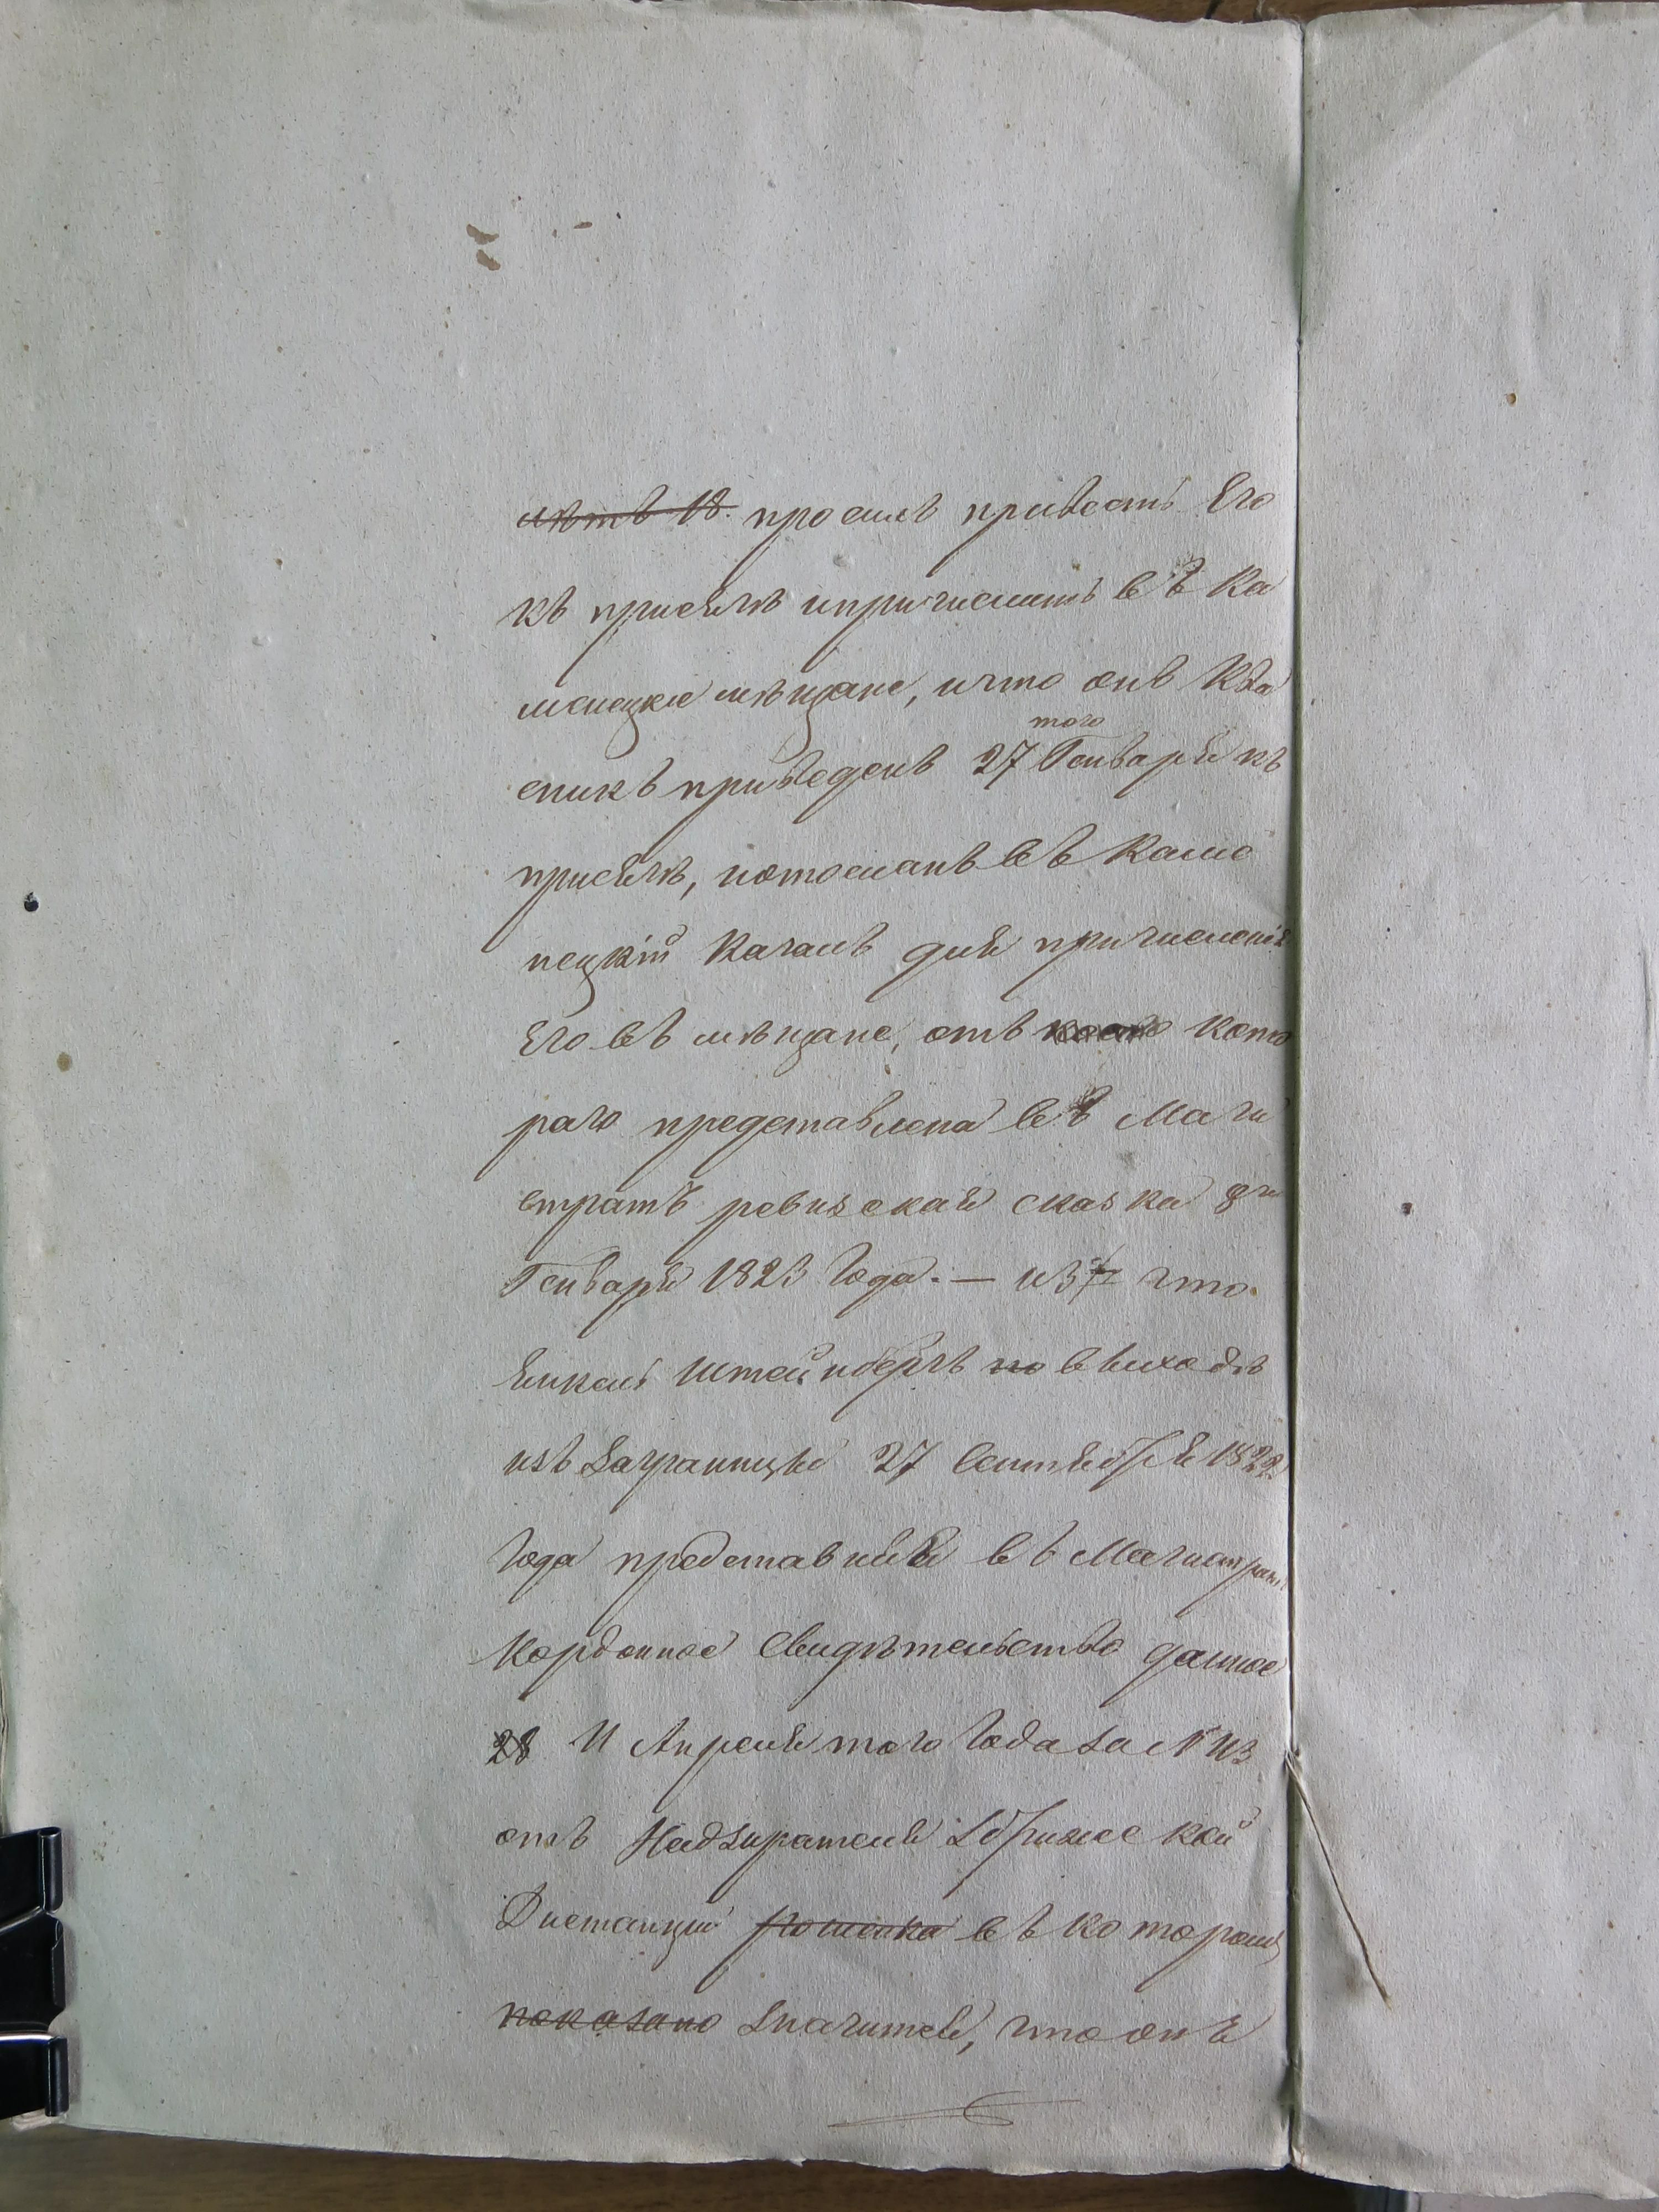 лѣтъ 18. просилъ привесть Его
къ присягѣ ипричислить въ Ка
менецкіе мѣщане, ичто онъ
приведенъ 27 того Генваря къ
присягѣ, иотосланъ въ Каме
нецкій Кагалъ для причисленія
Его въ мѣщане, отъ кото
раго представлена въ Маги
стратъ ревизская сказка 8го
Генваря 1823 Года. — и 3 что
Янкель Штейнбергъ по выходѣ
изъ Заграницы 27 Сентября 1822
Года представилъ въ Магистратъ
Кордонное Свидѣтельство данное
28 11 Апреля того Года за № 113
отъ Надзирателя Збрижской
Дистанціи въ котором
показано значится, что онъ